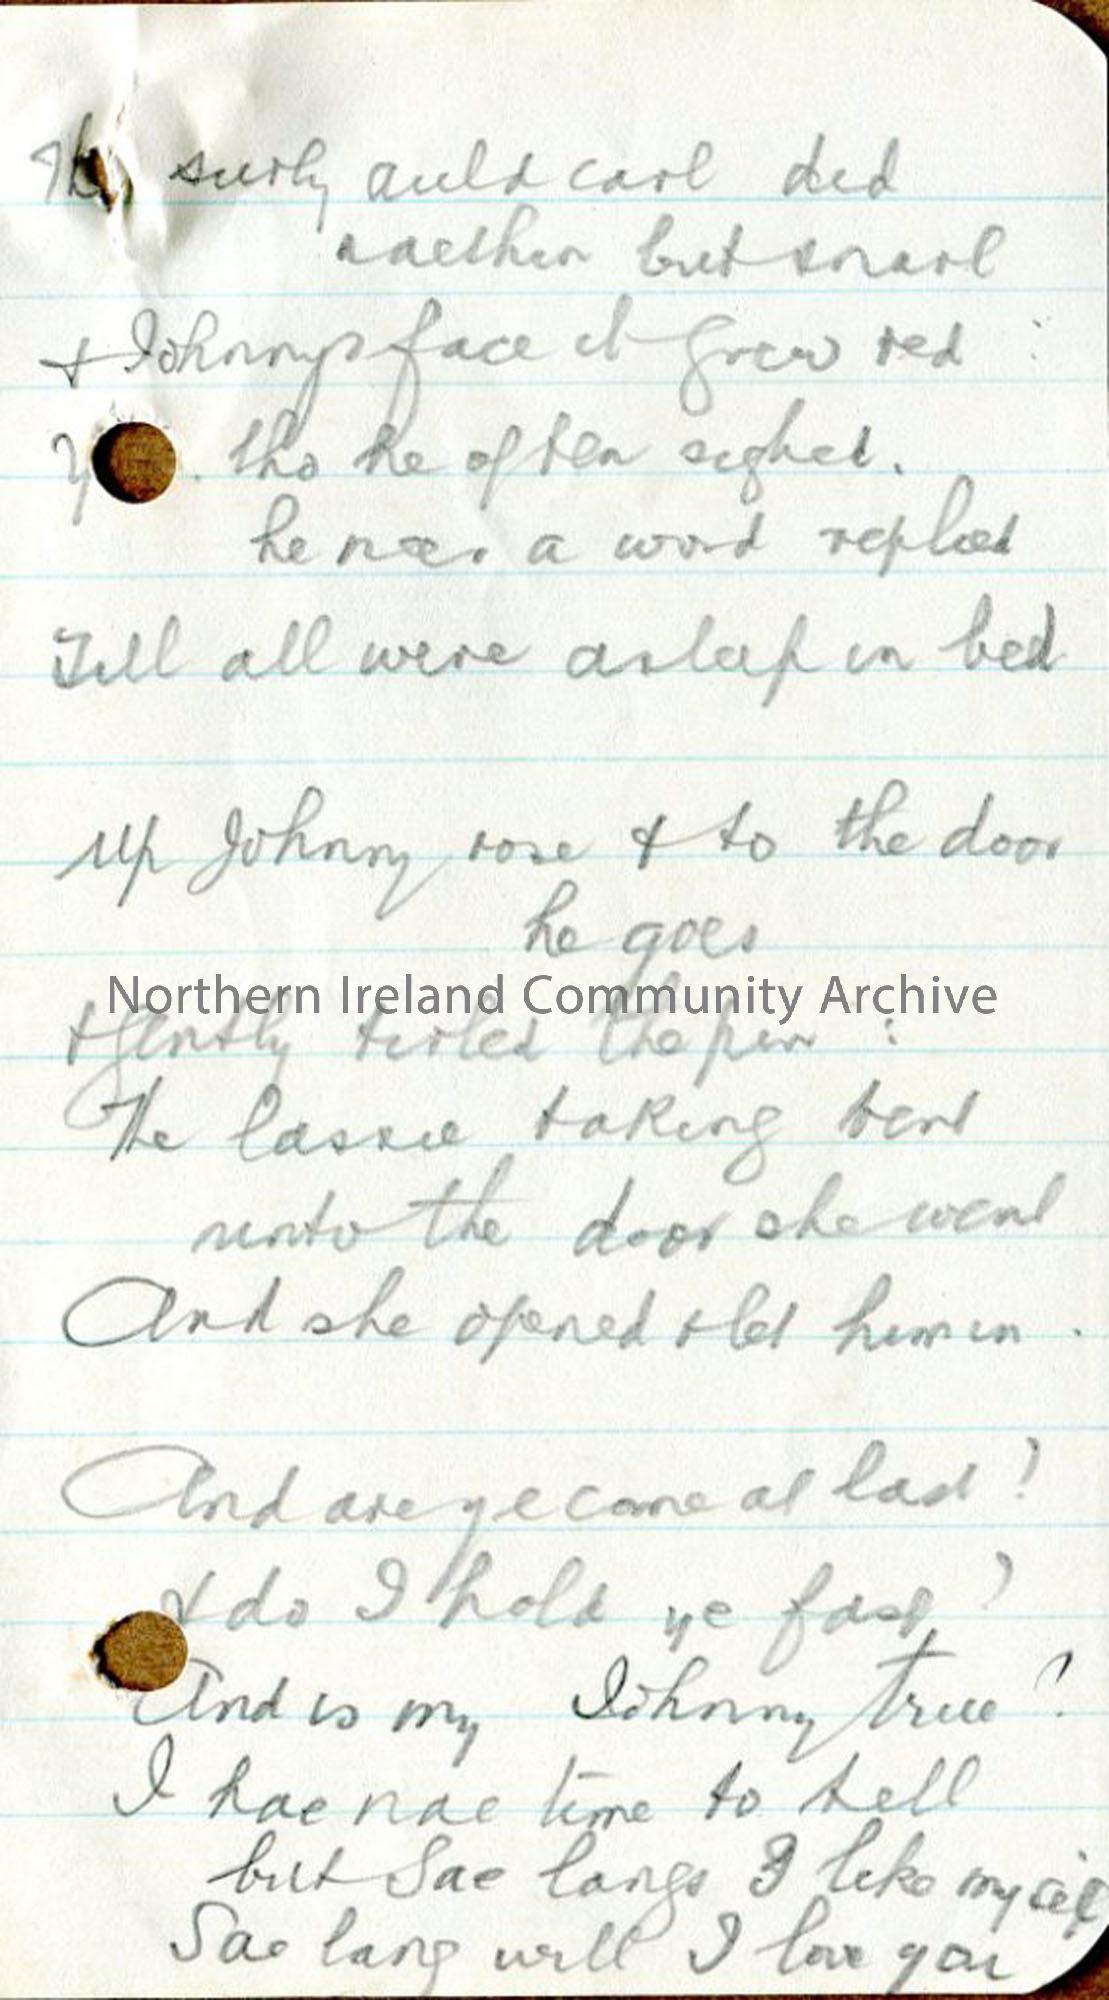 The surly auld carl did
naethin but snarl
& Johnny's face it grew red :
Y tho he often sighed.
he ne'er a word replied
Till all were asleep in bed
Up Johnny rose & to the door
he goes
Northern Ireland Community Archive
& gently tirled the pin :
The lassie taking tent
unto the door she went
And she opened & let him in .
And are ye come at last !
& do I hold ye fast ?
And is my Johnny true ?
I hae nae time to tell
but Sae langs I like mysel
Sae lang will I love you